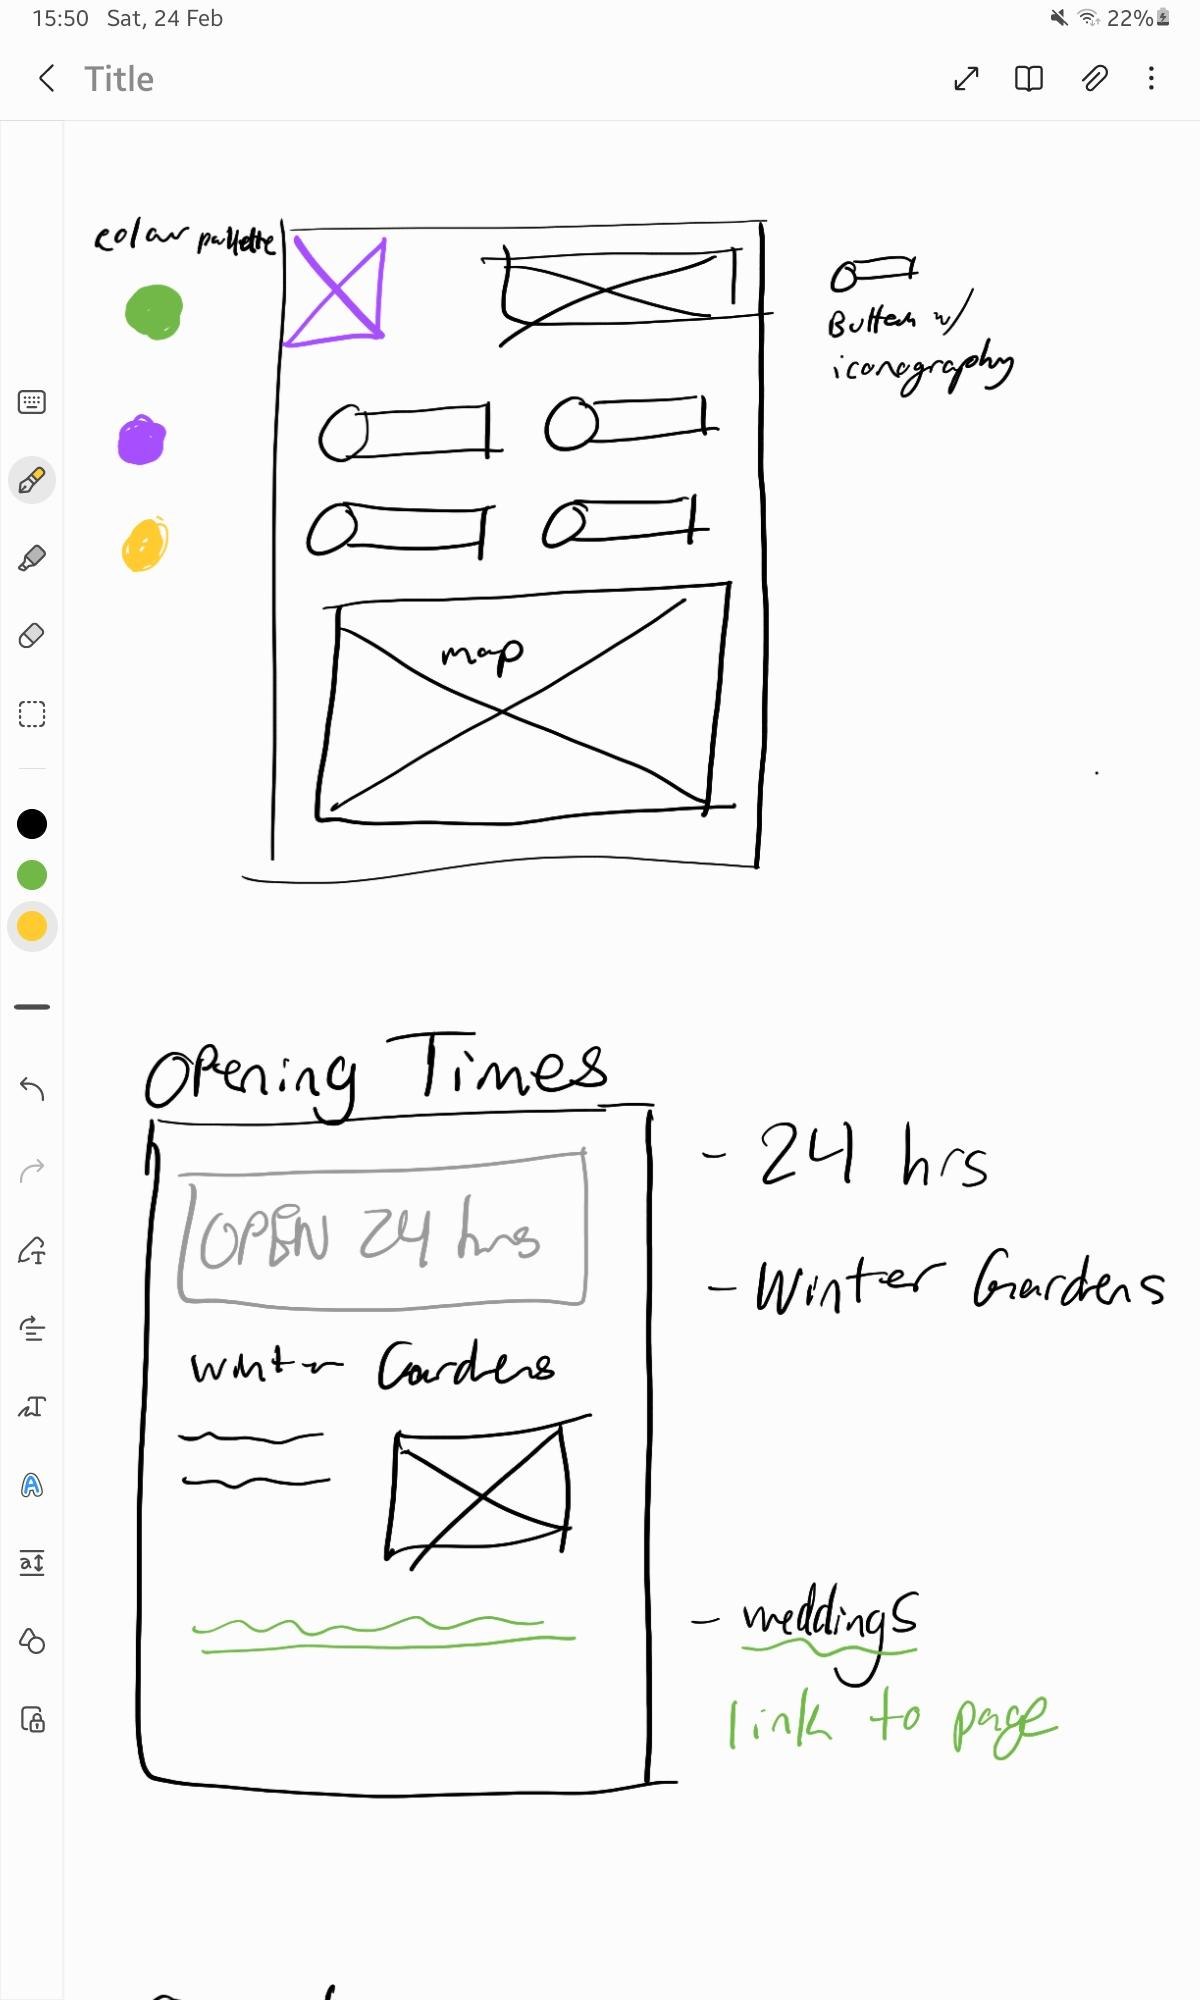 15:50 Sat, 24 Feb
22%
Title
colour pallette
Button w/
iconography
map
Opening Times
OPEN 24 hrs
- 24 hrs
- Winter Gardens
Winter Gardens
- weddings
link to page